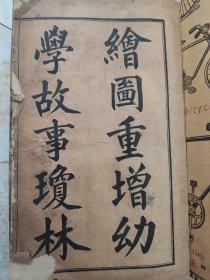 繪圖重增幼
學故事瓊林
bicyc